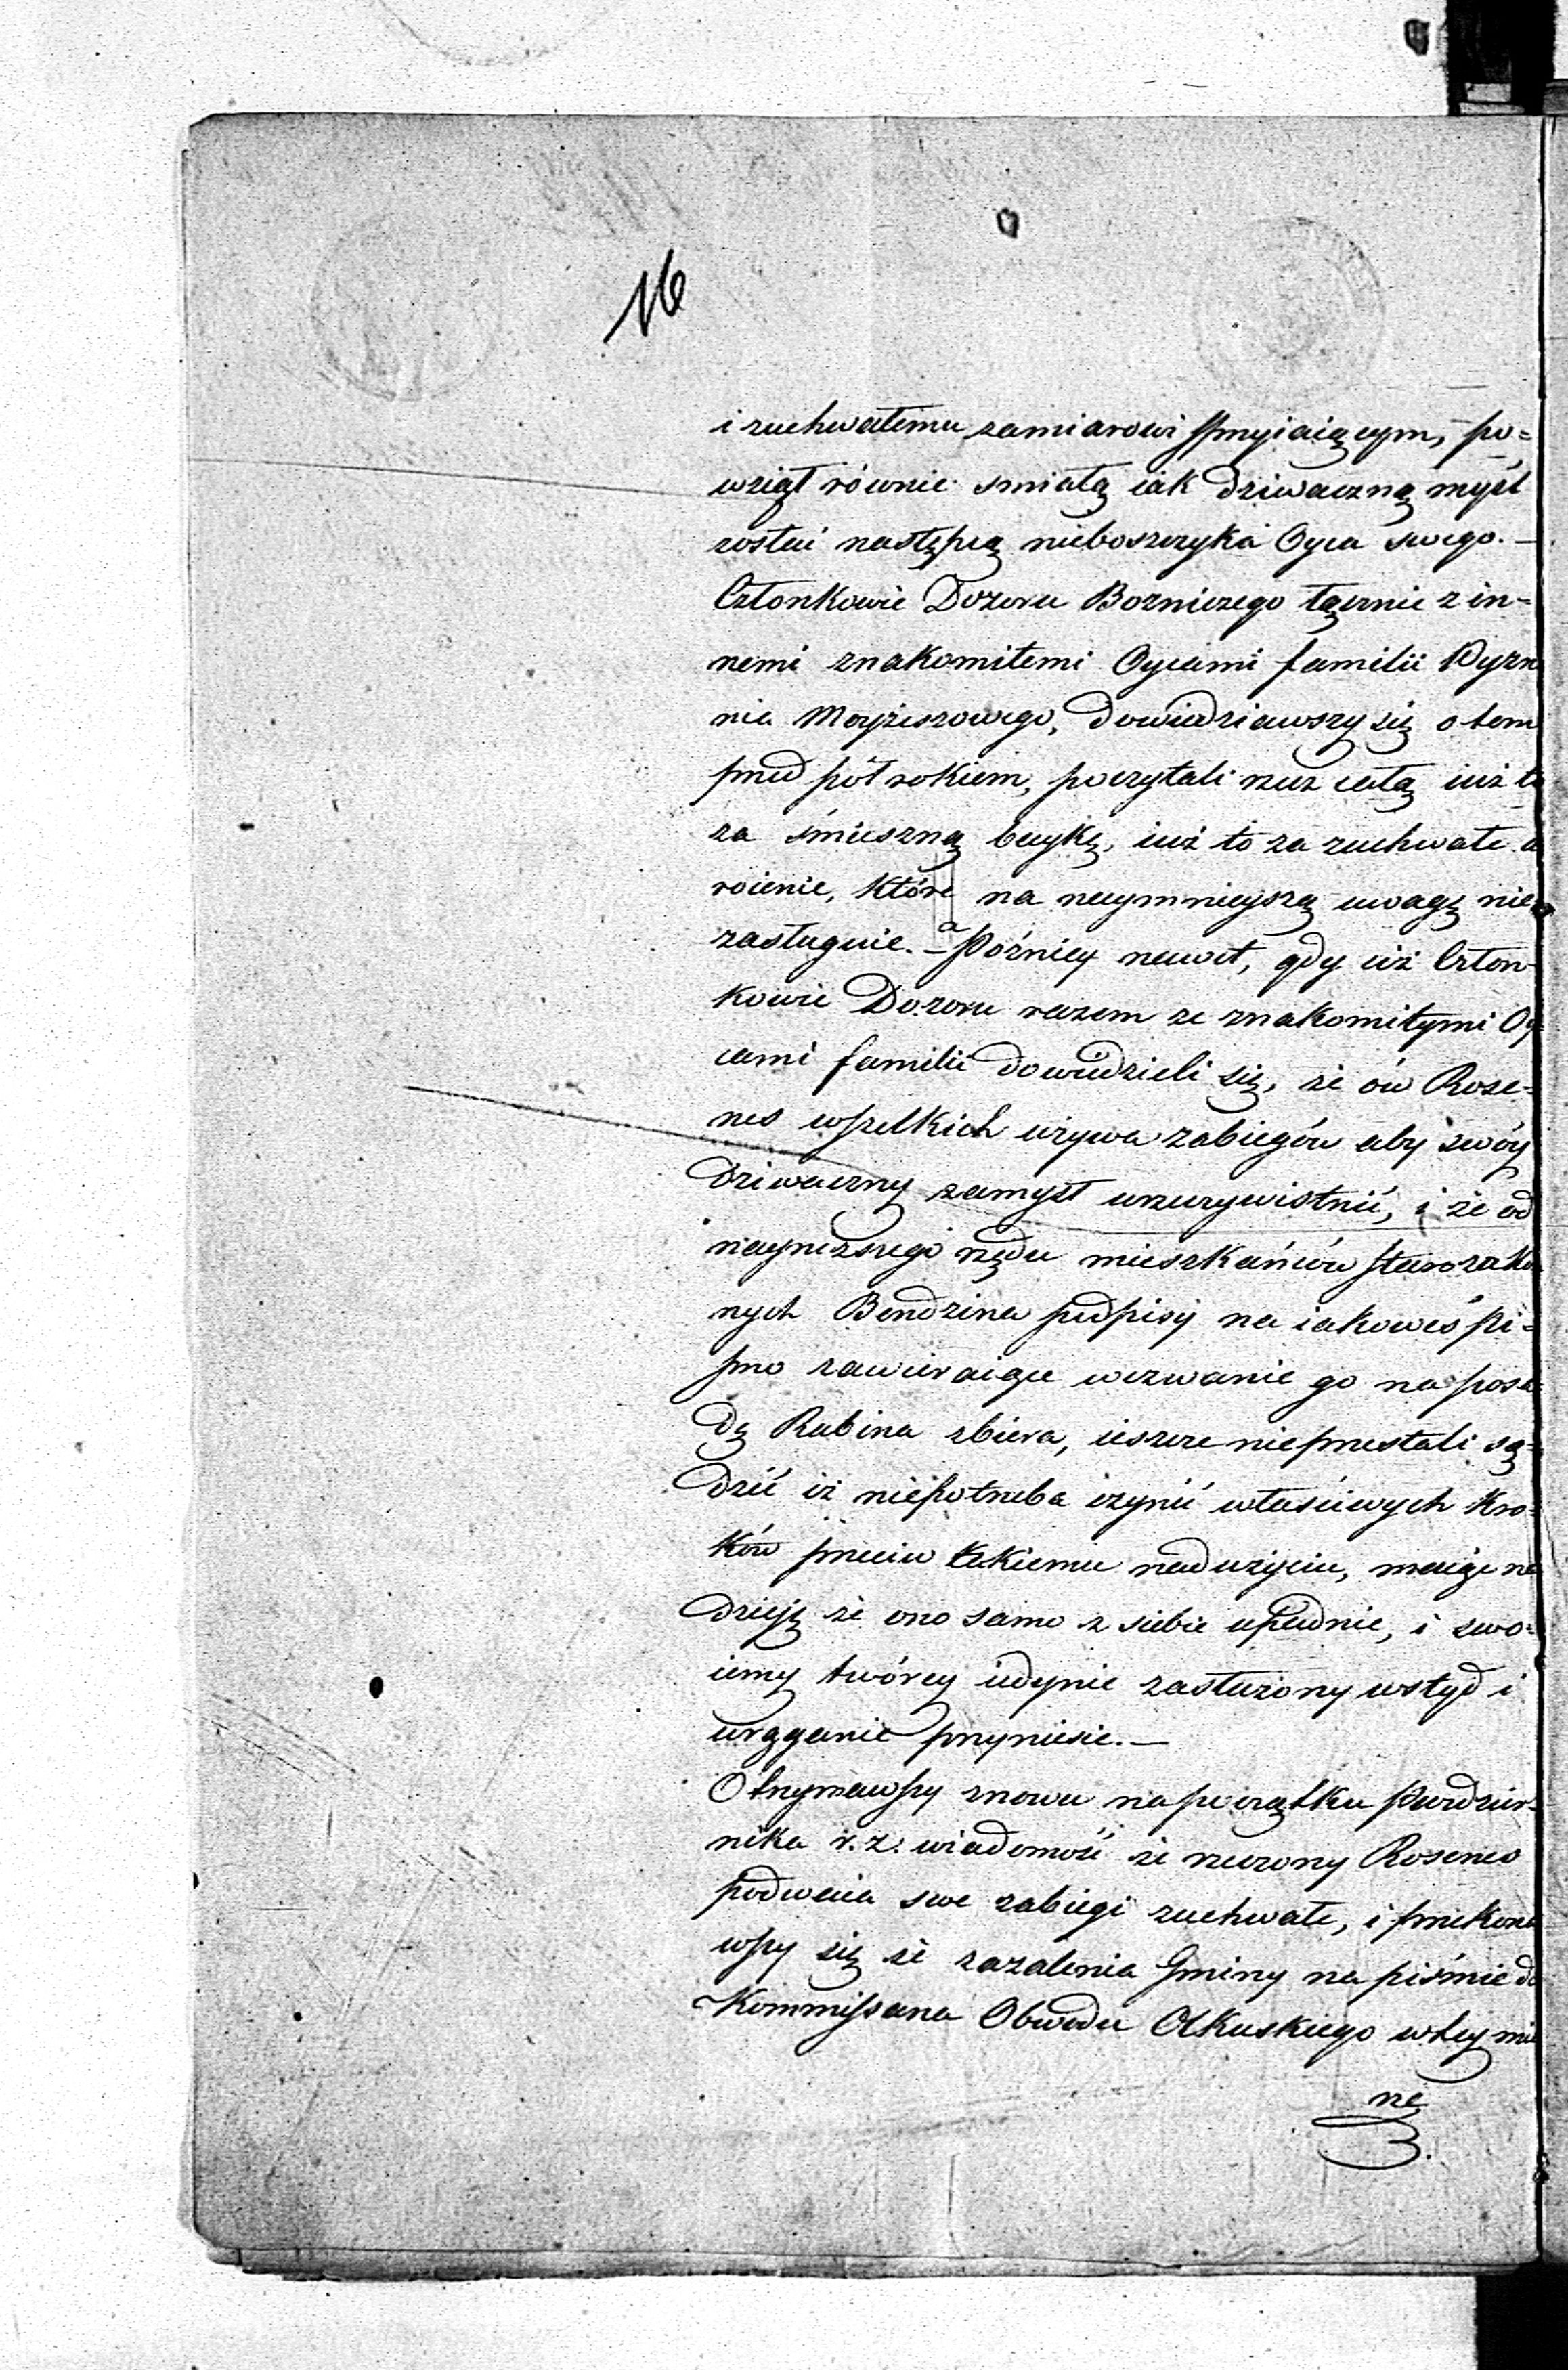 16
i zuchwałemu zamiarowi sprzyiaiącym, po=
wziął równie smiałą iak dziwaczną myśl
zostać następcą nieboszczyka Oyca swego. —
Członkowie Dozoru Bozniczego łącznie z in-
nemi znakomitemi Oycami familii Wyzn
nia Moyżeszowego, dowiedziawszy się o tem
przed pół rokiem, poczytali rzecz całą iuż to
za śmieszną baykę, iuż to za zuchwałe u
roienie, które na naymnieyszą uwagę nie
zasługuie. — a Pózniey nawet, gdy iuż Człon-
kowie Dozoru razem ze znakomitymi Oy
cami familii dowiedzieli się, że ów Rose-
nes wszelkich używa zabiegów aby swóy
dziwaczny zamysł urzeczywistnić, i że od
nayniższego rzędu mieszkańców starozako
nych Bendzina podpisy na iakoweś pi=
smo zawieraiące wezwanie go na posa=
dę Rabina zbiera, ieszcze nieprzestali są=
dzić iż niepotrzeba czynić właściwych kro=
ków przeciw takiemu nadużyciu, maiąc na
dzieię że ono samo z siebie upadnie, i swo=
iemy twórcy iedynie zasłużony wstyd i
urąganie przyniesie. —
Otrzymawszy znowu na początku Paździer-
nika r. z. wiadomość że rzeczony Rosenes
podwaia swe zabiegi zuchwałe, i przekona
wszy się że zażalenia Gminy na piśmie do
Kommissarza Obwodu Olkuskiego w tey mie
rze